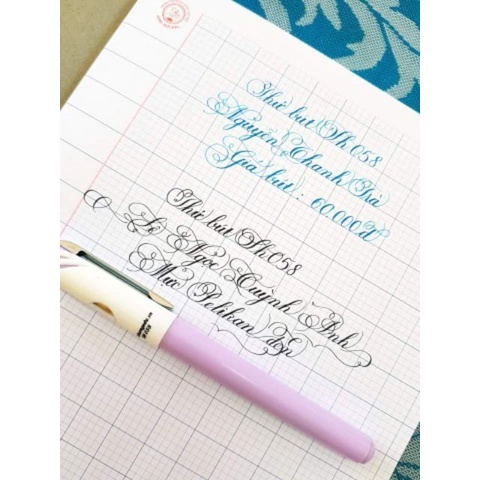 Thử bút Sh 058
Nguyễn Thanh Trà
Giá bút : 60.000đ
Thử bút Sh 058
Lê Ngọc Quỳnh Anh
Mực Pelikan đen